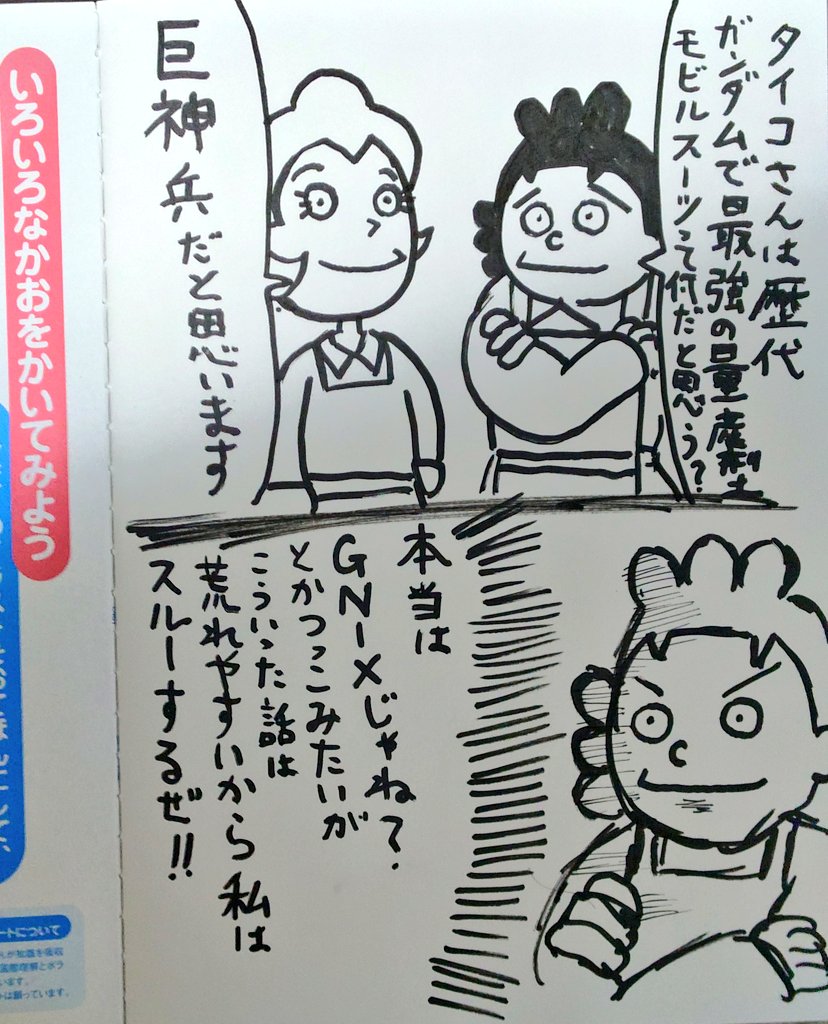 タイコさんは歴代
ガンダムで最強の量産型
モビルスーツって何だと思う?
巨神兵だと思います
本当は
GN-Xじゃね?
とかつっこみたいが
こういった話は
荒れやすいから私は
スルーするぜ!!
いろいろなかおをかいてみよう
ートについて